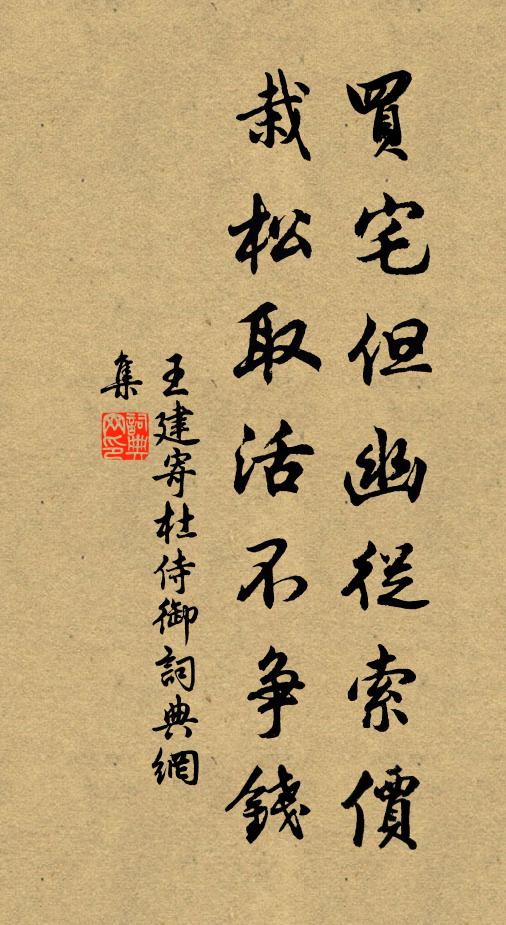 買宅但幽從索價
栽松取活不爭錢
王建寄杜侍御詞典網
集
詞典
网印